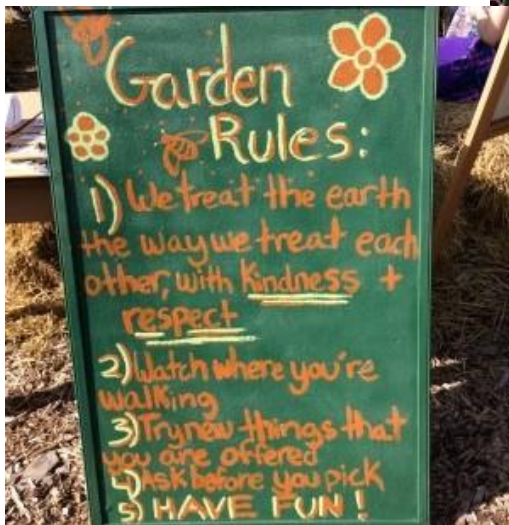 Garden
Rules:
1) We treat the earth
the way we treat each
other, with kindness +
respect
2) Watch where you're
walking
3) Try new things that
you are offered
4) Ask before you pick
5) HAVE FUN!